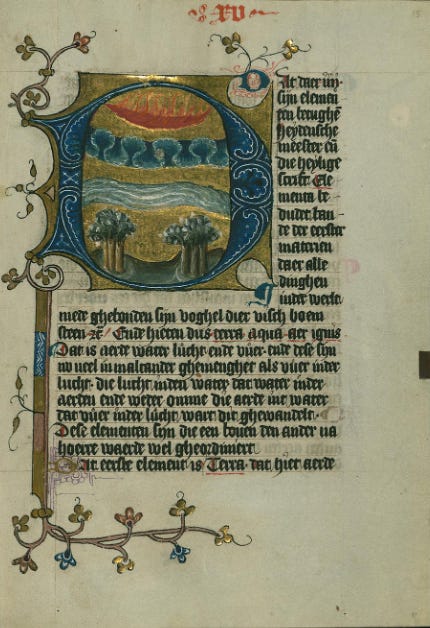 XV
Dat daer iiij
sijn elemen
ten betughẽ
heydensche
meester eñ
die heylige
scrift. Ele
menta be
dudet. han
de der eerster
materien
daer alle
dinghen
in der werlt
mede ghebonden sijn voghel dier visch boem
steen ⁊c̃ Ende hieten dus terra aqua aer ignis
Dat is aerde water lucht ende vuer ende dese sijn
so veel in malcander ghemenghet als vuer inder
lucht die lucht inden water dat water inder
aerden ende weder omme die aerde int water
dat vuer inder lucht wart dit ghewandelt.
Dese elementen sijn die een bouen den ander na
hoere waerde wel gheordiniert
Dat eerste element is Terra dat hiet aerde